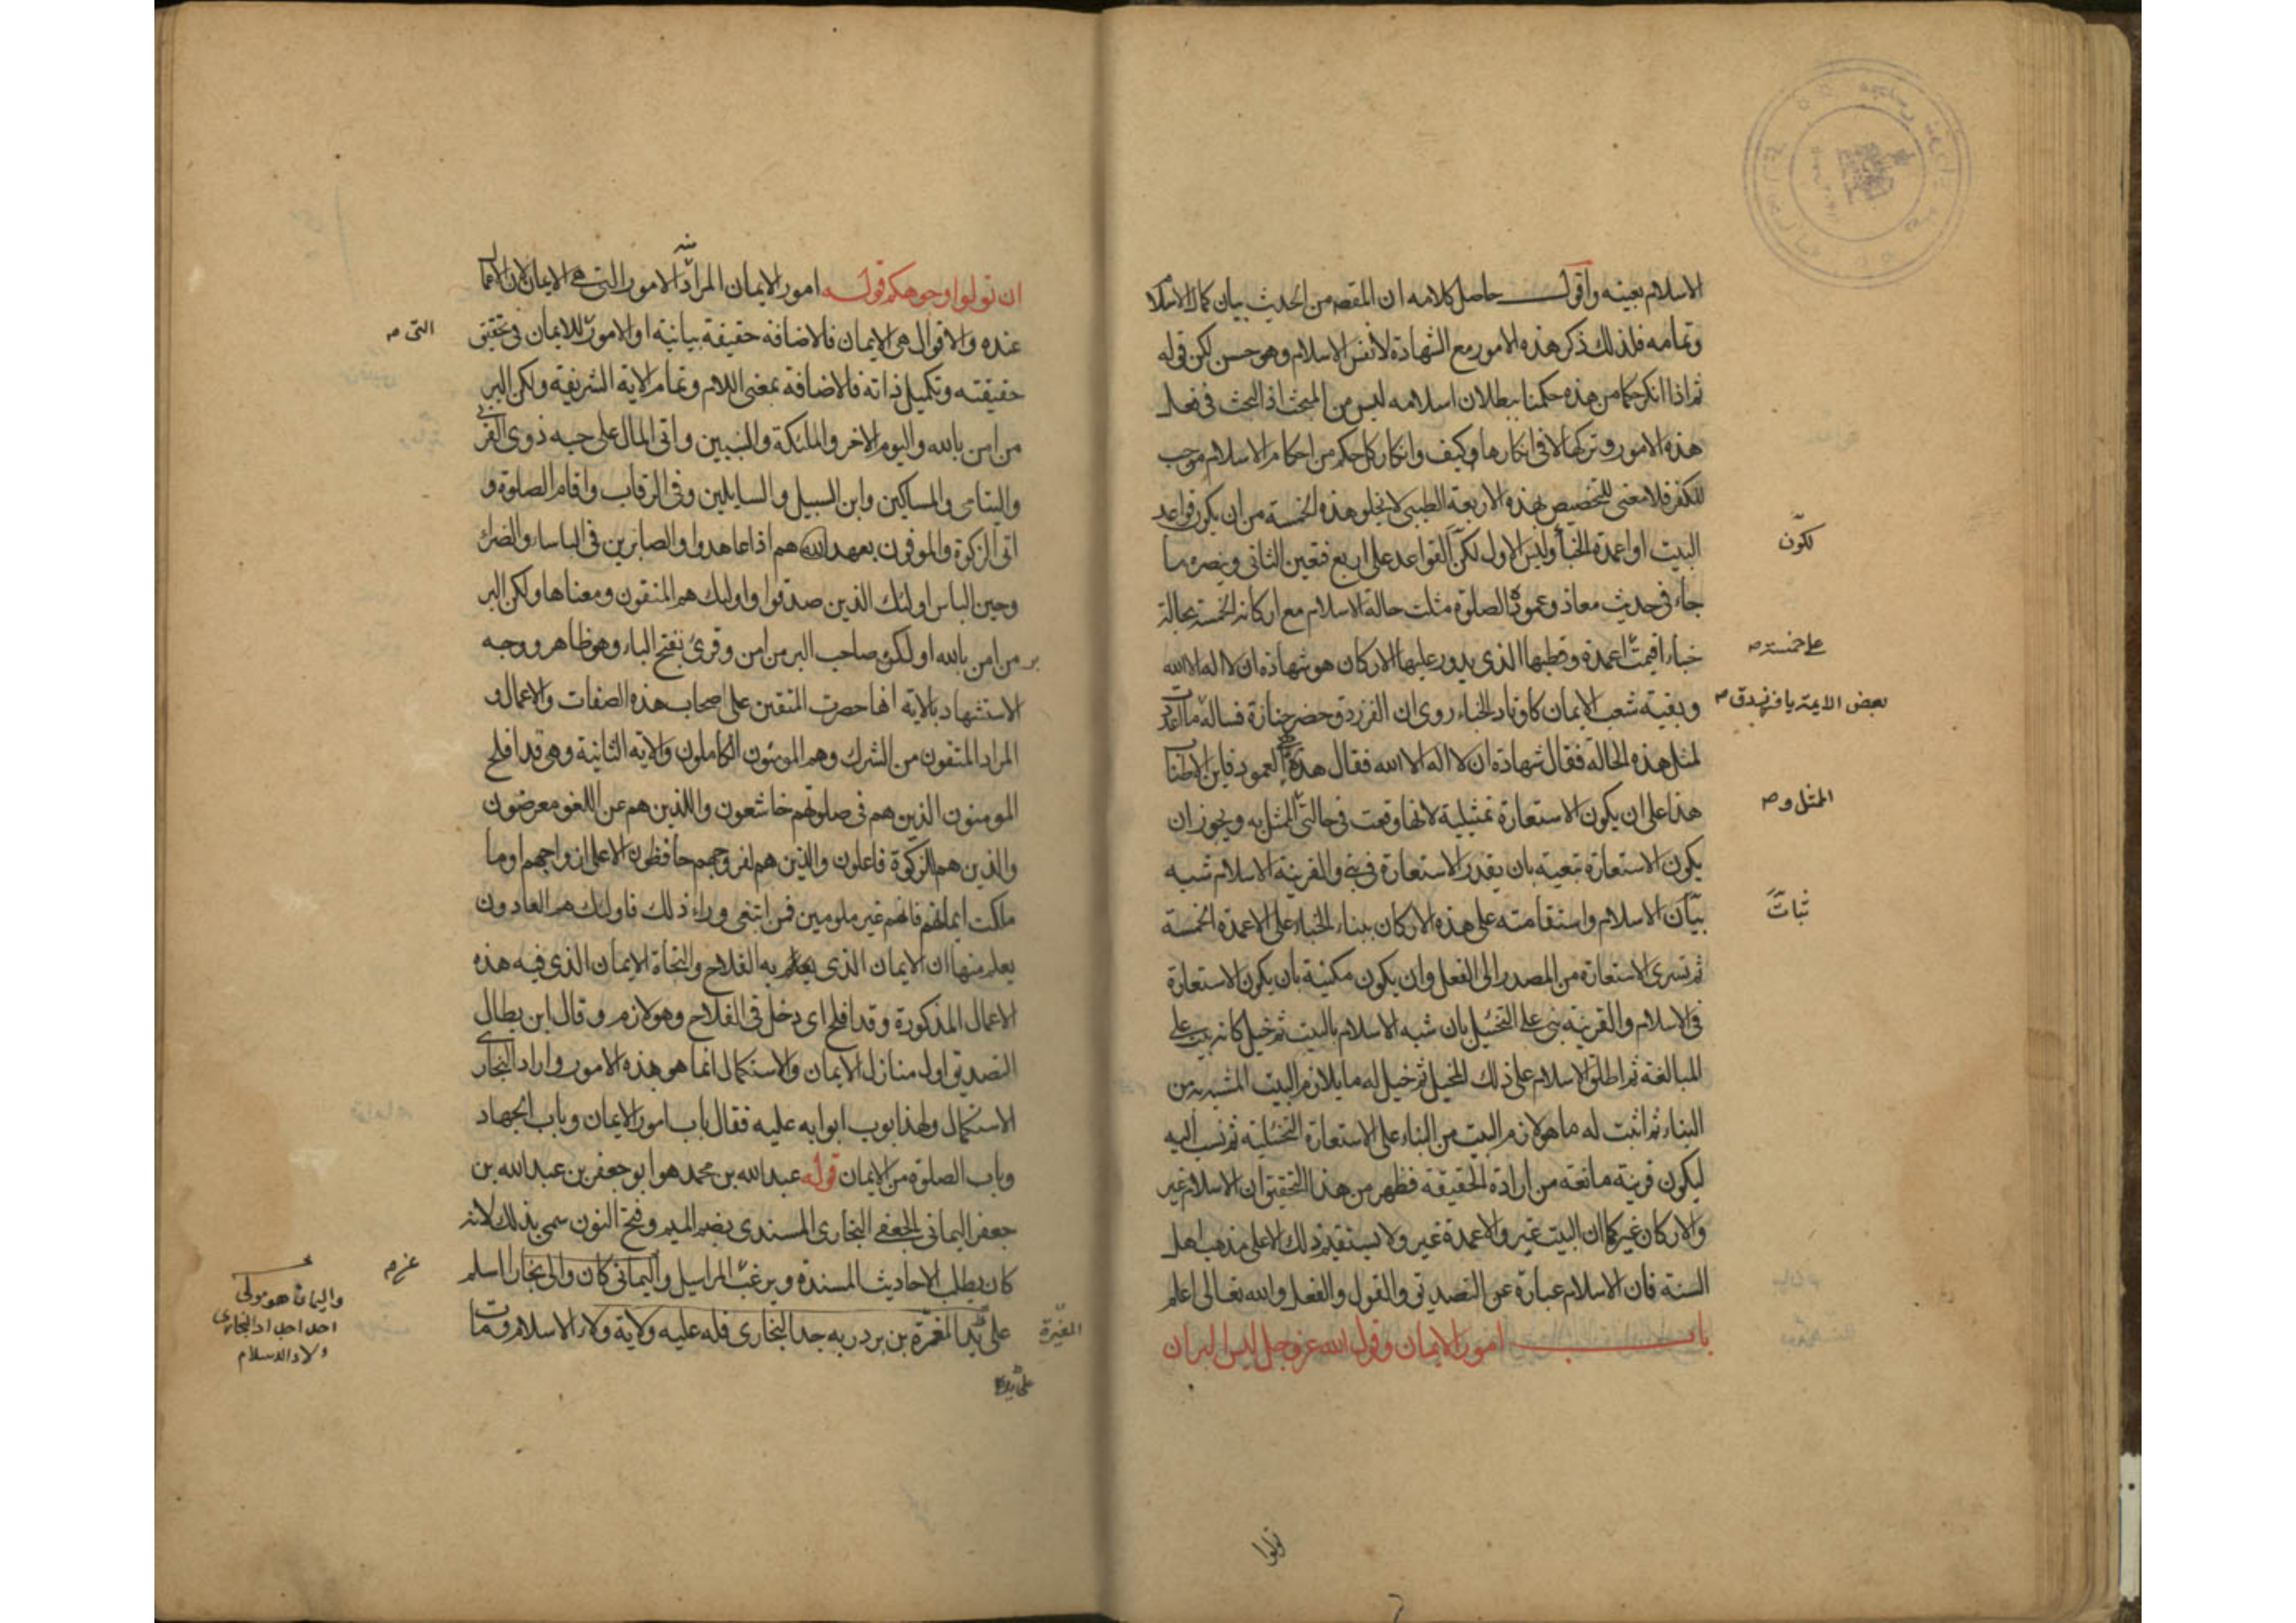 الاسلام بعينه واقول حاصل كلامه ان المقصد من الحديث بيان كمال الاسلام
وتمامه فلذلك ذكر هذه الامور مع الشهادة لا نفس الاسلام وهو حسن لكن قوله
ثم اذا انكر حكما من هذه حكمنا ببطلان اسلامه ليس من المبحث اذ البحث في فعل
هذه الامور وتركها لا في انكارها وكيف وانكار كل حكم من احكام الاسلام موجب
للكفر فلا معنى للتخصيص بهذه الاربعة الطيبي لا يخلو هذه الخمسة من ان يكون قواعد
البيت او اعمدة الخباء وليس الاول لكن القواعد على اربع فتعين الثاني وينصره ما
لكون
جاء في حديث معاذ وعموده الصلوة مثلت حالة الاسلام مع اركانه الخمسة بحالة
خباء اقيمت اعمدة وقطبها الذي يدور عليها الاركان هو شهادة ان لا اله الا الله
على خمسة صح
وبقية شعب الايمان كاوتاد الخباء روى ان الفرزدق حضر جنازة فساله ما اعددت
بعض الايمة يا فرزدق صح
لمثل هذه الحالة فقال شهادة ان لا اله الا الله فقال هذا العمود فاين الاطناب
هذا على ان يكون الاستعارة تمثيلية لانها وقعت في حالتي الممثل به ويجوز ان
الممثل و صح
يكون الاستعارة تبعية بان يقدر الاستعارة في بني والقرينة الاسلام شبه
بيان الاسلام واستقامته على هذه الاركان ببناء الخباء على الاعمدة الخمسة
ثبات
ثم تسرى الاستعارة من المصدر الى الفعل وان يكون مكنية بان يكون الاستعارة
في الاسلام والقرينة بني على التخييل بان شبه الاسلام بالبيت ثم خيل كانه بيت على
المبالغة ثم اطلق الاسلام على ذلك المخيل ثم خيل له ما يلازم البيت المشبه به من
البناء ثم اثبت له ما هو لازم البيت من البناء على الاستعارة التخييلية ثم نسب اليه
ليكون قرينة مانعة من ارادة الحقيقة فظهر من هذا التحقيق ان الاسلام غير
والاركان غير كما ان البيت غير والاعمدة غير ولا يستقيم ذلك الا على مذهب اهل
السنة فان الاسلام عبارة عن التصديق والقول والفعل والله تعالى اعلم
باب امور الايمان وقول الله عز وجل ليس البر ان
تولوا
ان تولوا وجوهكم قوله امور الايمان المراد منه الامور التي هي الايمان لان الاعمال
عنده والاقوال هي الايمان فالاضافة حقيقة بيانية او الامور للايمان في تحقيق
التي صح
حقيقته وتكميل ذاته فالاضافة بمعنى اللام وتمام الاية الشريفة ولكن البر
من امن بالله واليوم الاخر والملئكة والنبيين واتى المال على حبه ذوى القربى
واليتامى والمساكين وابن السبيل والسايلين وفي الرقاب واقام الصلوة و
اتى الزكوة والموفون بعهد الله هم اذا عاهدوا والصابرين في الباساء والضراء
وحين الباس اولئك الذين صدقوا واولئك هم المتقون ومعناها ولكن البر
بر من امن بالله او لكن صاحب البر من امن وقرئ بفتح الباء وهو ظاهر ووجه
الاستشهاد بالاية انها حصرت المتقين على اصحاب هذه الصفات والاعمال و
المراد المتقون من الشرك وهم المومنون الكاملون والاية الثانية وهي قد افلح
المومنون الذين هم في صلوتهم خاشعون والذين هم عن اللغو معرضون
والذين هم للزكوة فاعلون والذين هم لفروجهم حافظون الا على ازواجهم او ما
ملكت ايمانهم فانهم غير ملومين فمن ابتغى وراء ذلك فاولئك هم العادون
يعلم منها ان الايمان الذي يعلم به الفلاح والنجاة الايمان الذي فيه هذه
الاعمال المذكورة وقد افلح اي دخل في الفلاح وهو لازم وقال ابن بطال
التصديق اول منازل الايمان والاستكمال انما هو هذه الامور واراد البخاري
الاستكمال ولهذا بوب ابوابه عليه فقال باب امور الايمان وباب الجهاد
وباب الصلوة من الايمان قوله عبد الله بن محمد هو ابو جعفر بن عبد الله بن
جعفر اليماني الجعفي البخاري المسندي بضم الميم وفتح النون سمي بذلك لانه
كان يطلب الاحاديث المسندة ويرغب المراسيل واليماني كان والي بخارا اسلم
عن صح
على يد المغيرة بن بردزبه جد البخاري فله عليه ولاية ولاء الاسلام ومات
المغيرة
واليمان هو مولى
احد اجداد البخاري
ولاء الاسلام
على يديه